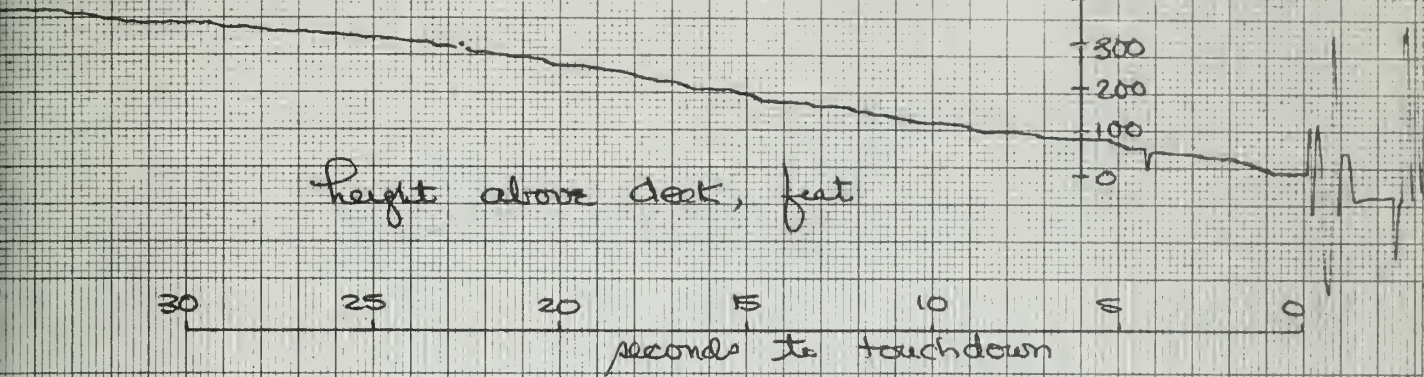 300
200
100
0
height above deck, feet
30 25 20 15 10 5 0
seconds to touchdown